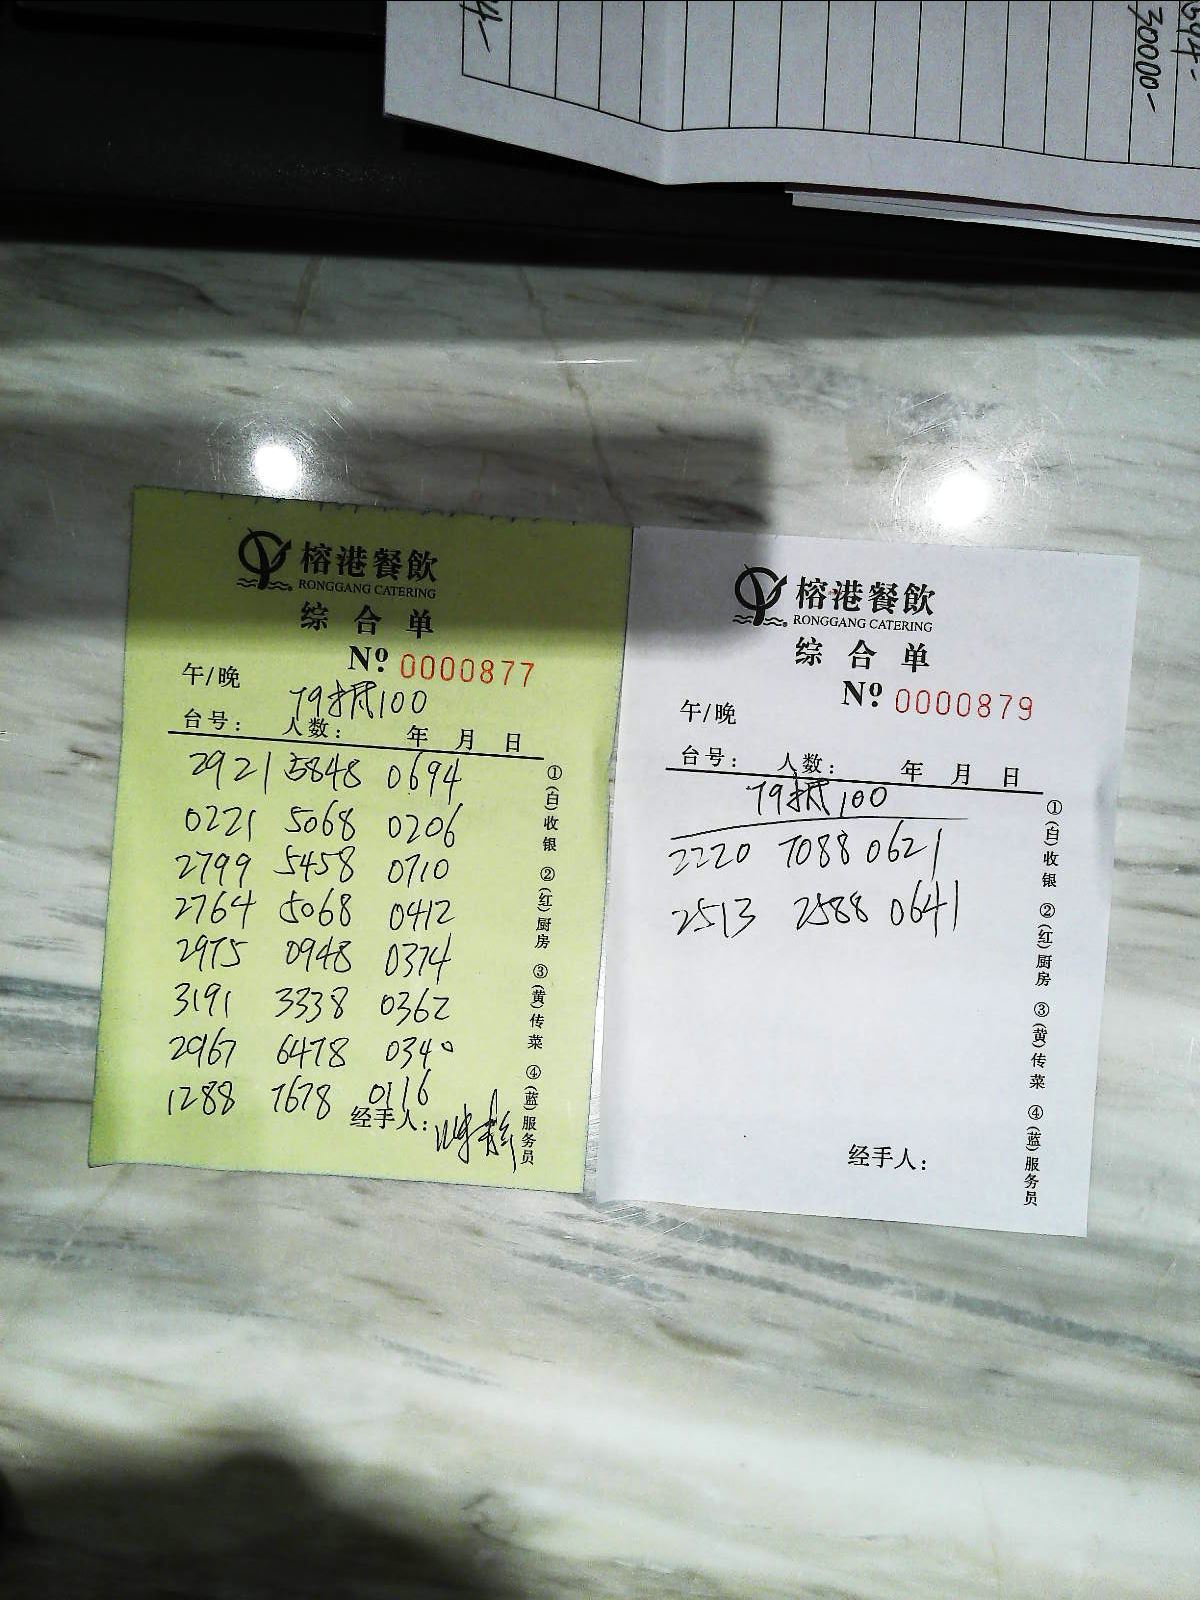 30000-
榕港餐飲
RONGGANG CATERING
综合单
№ 0000877
午/晚
79抵100
台号： 人数： 年 月 日
2921 5848 0694
0221 5068 0206
2799 5458 0710
2764 5068 0412
2975 0948 0374
3191 3338 0362
2967 6478 0340
1288 7678 0116
经手人：
①(白)收银 ②(红)厨房 ③(黄)传菜 ④(蓝)服务员
榕港餐飲
RONGGANG CATERING
综合单
№ 0000879
午/晚
台号： 人数： 年 月 日
79抵100
2220 7088 0621
2513 2588 0641
经手人：
①(白)收银 ②(红)厨房 ③(黄)传菜 ④(蓝)服务员